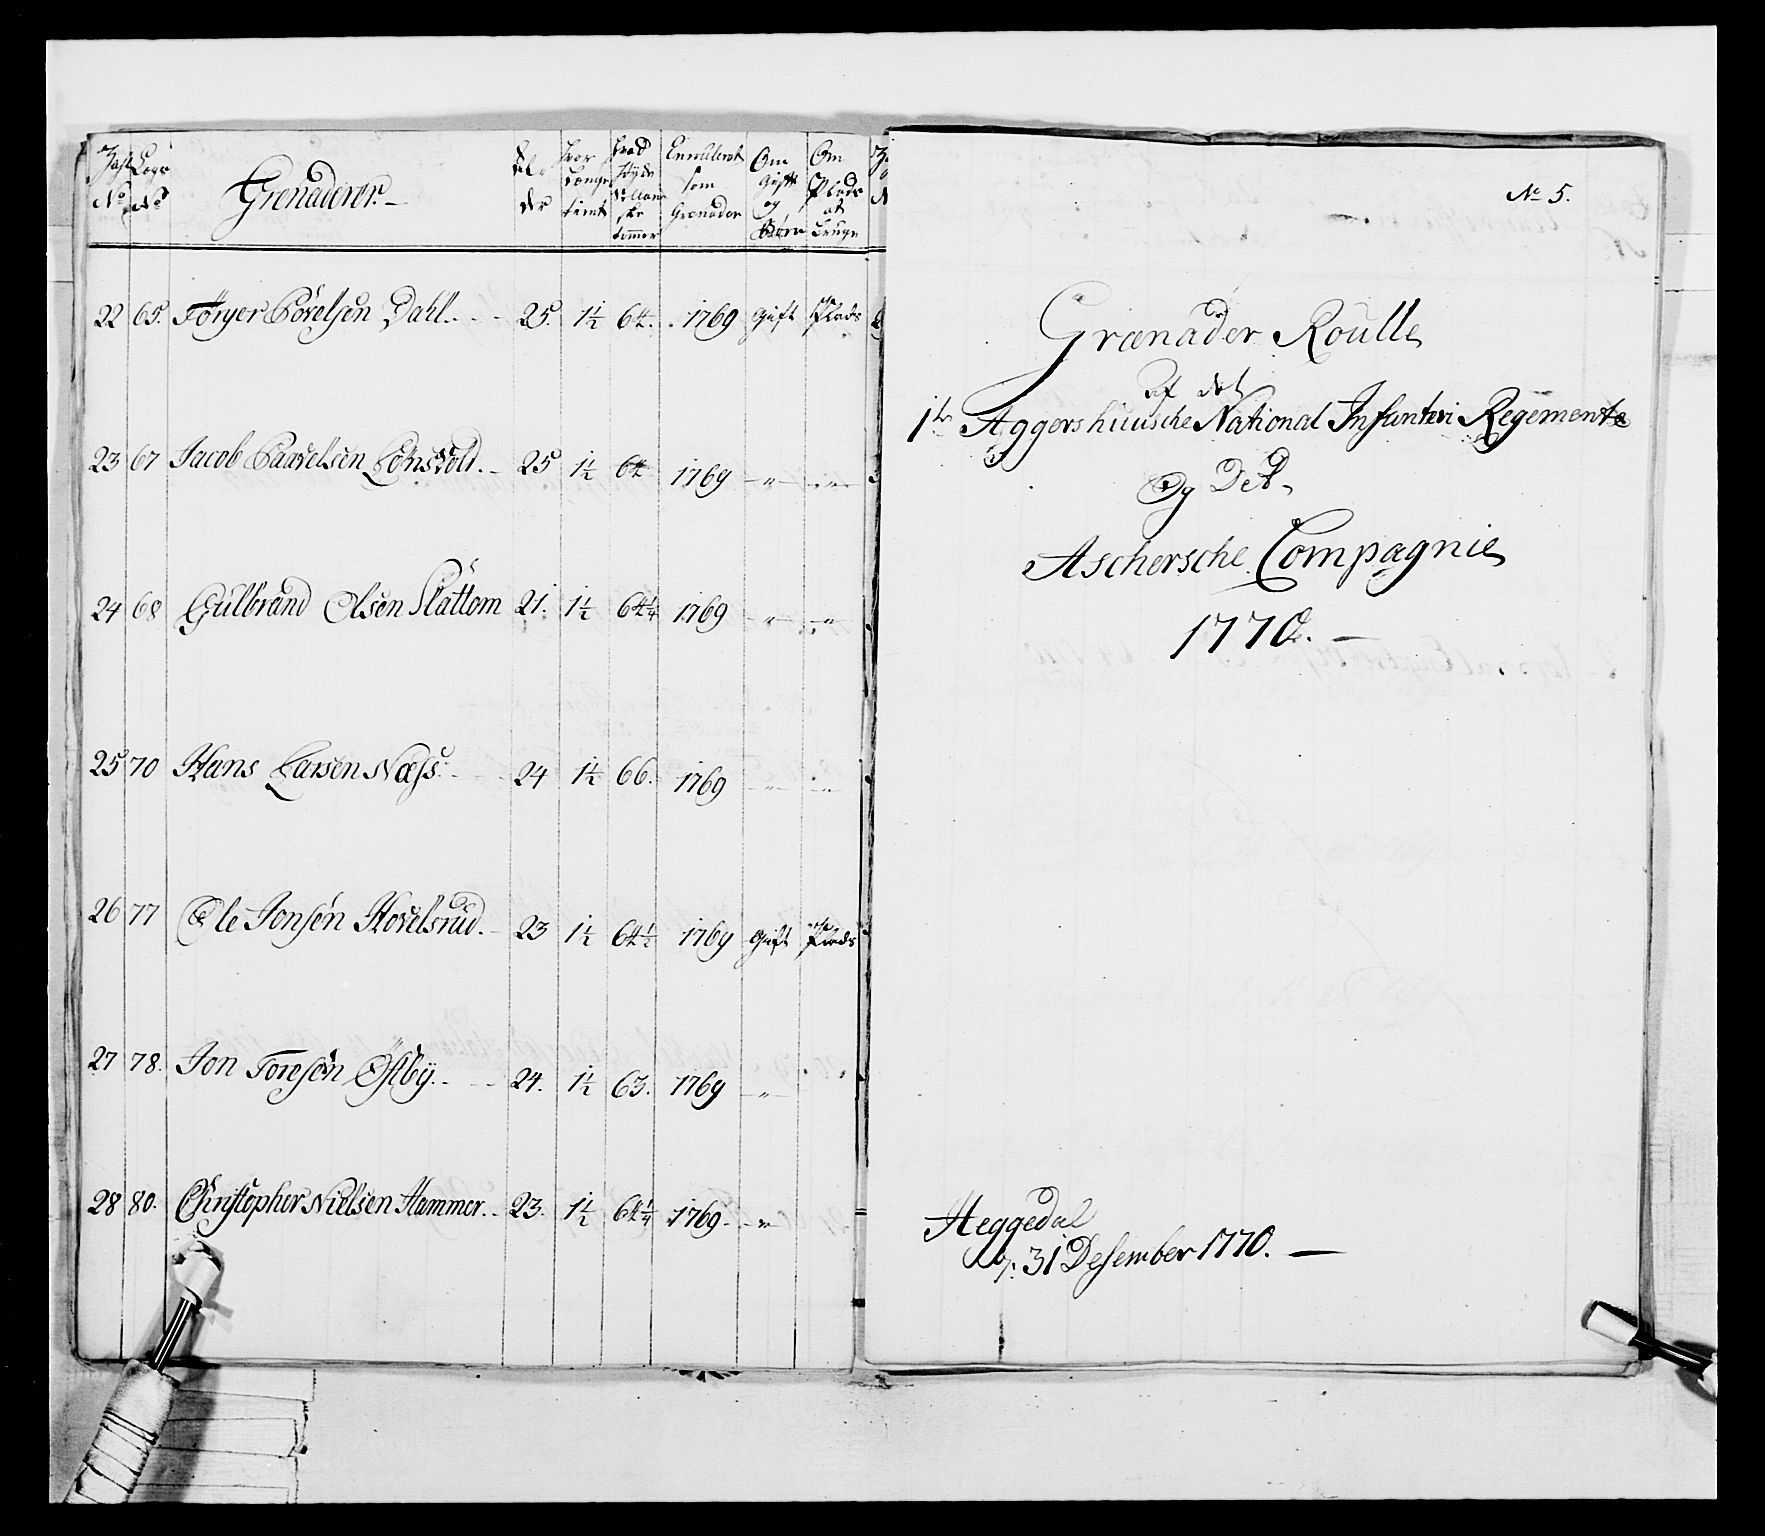 No No Grenaderer
som Grenader
Om Gift og Børn
Om Plads at bruge
22 65. Törger Povelsen Dahl. 25. 1½ 64. 1769 Gift Plads
23 67 Jacob Paavelsen 25 1½ 64 1769 " "
24 68 Gulbrand Olsen Slattom 21. 1½ 64¼ 1769 " "
25 70 Hans Larsen Næss. 24 1½ 66. 1769 " "
26 77 Ole Jonsen Hovelsrud. 23 1½ 64½ 1769 Gift Plads
27 78. Jon Toresön Östbÿ. 24. 1½ 63. 1769 "
28 80. Christopher Nielsen Hammer. 23. 1½ 64¼ 1769. "
No 5.
Grenader Roulle
Af det
1te Aggershuusche National Infanteri Regemente
Og Det
Aschersche Compagnie
1770.
Heggedal
d: 31 Desember 1770.